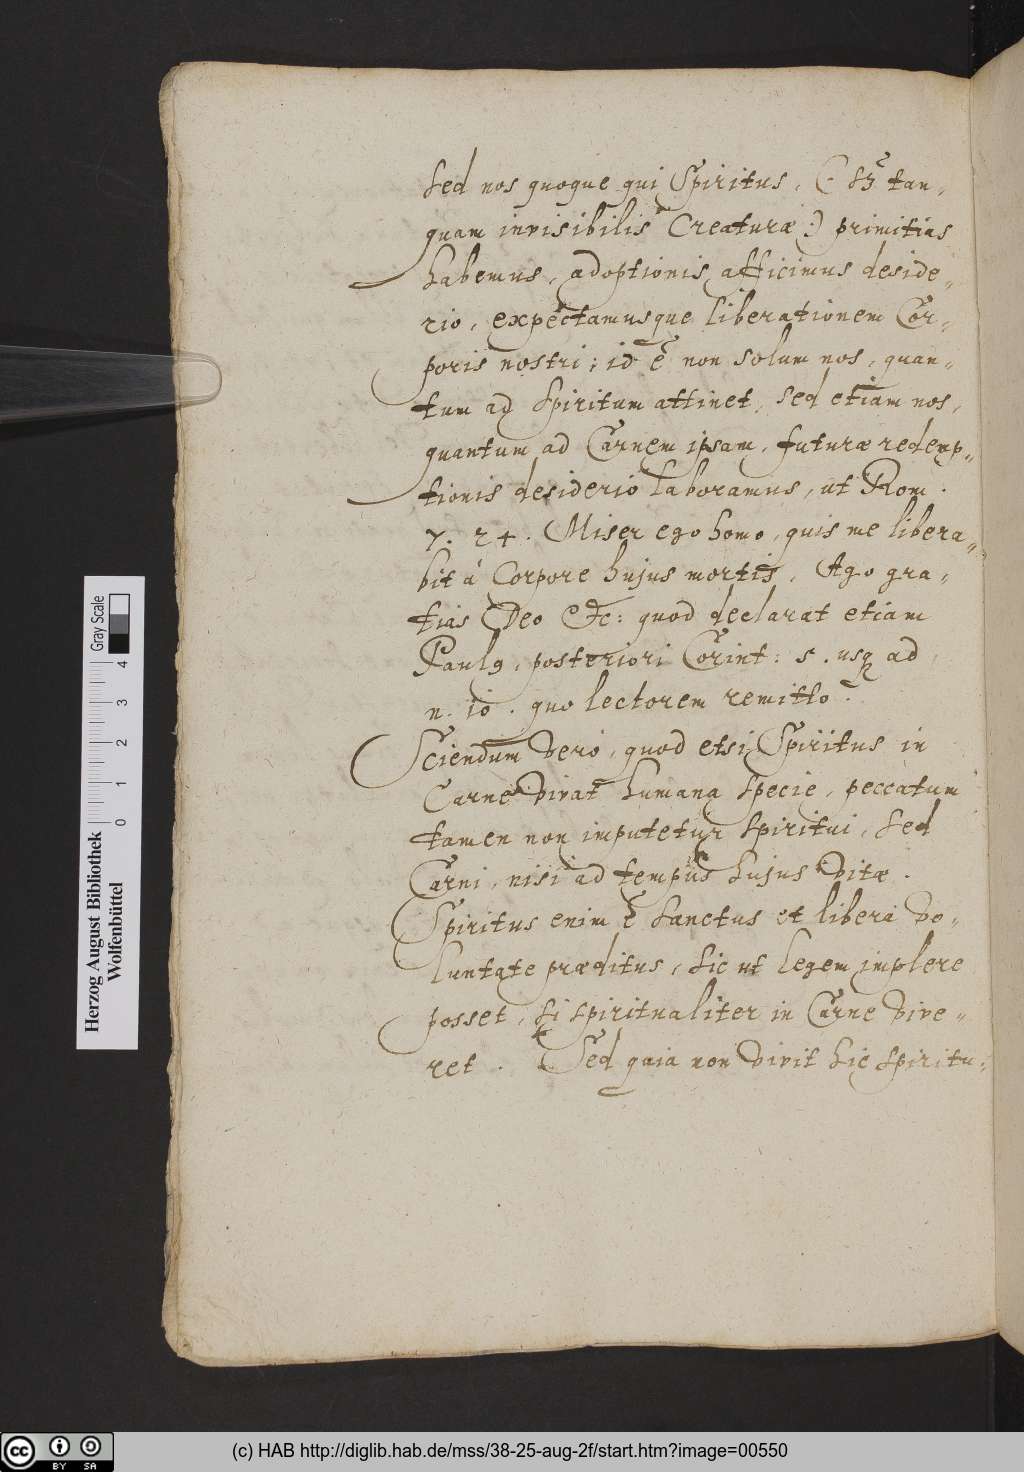 Sed nos quoque qui Spiritus, (: tan-
quam invisibilis Creaturæ :) primitias
habemus, adoptionis afficimus deside-
rio, expectamusque liberationem Cor-
poris nostri; id ē non solum nos, quan-
tum ad Spiritum attinet, sed etiam nos,
quantum ad Carnem ipsam, futuræ redemp-
tionis desiderio laboramus, ut Rom.
7. 24. Miser ego homo, quis me libera-
bit à Corpore hujus mortis, Ago gra-
tias Deo etc: quod declarat etiam
Paulꝰ, posteriori Corint: 5. usq ad
n. io. quo lectorem remitto.
Sciendum vero, quod etsi Spiritus in
Carne vivat humana specie, peccatum
tamen non imputetur spiritui, sed
Carni, nisi ad tempus hujus vitæ.
Spiritus enim ē sanctus et libera vo-
luntate præditus, sic ut legem implere
posset, si spiritualiter in Carne vive-
ret. Sed quia non vivit hic spiritu-
Herzog August Bibliothek
Wolfenbüttel
Gray Scale
0 1 2 3 4
(c) HAB http://diglib.hab.de/mss/38-25-aug-2f/start.htm?image=00550
cc BY SA